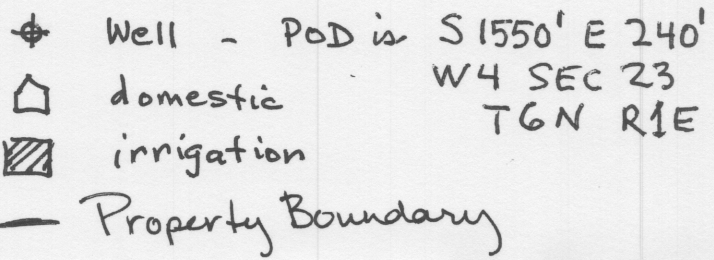 Well - POD is S 1550' E 240'
W4 SEC 23
T6N R1E
domestic
irrigation
Property Boundary